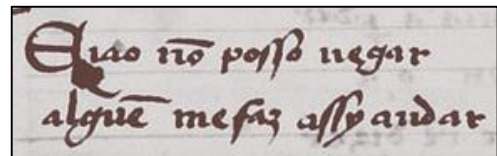 Eiao nō posso negar
alguē me faz assy andar